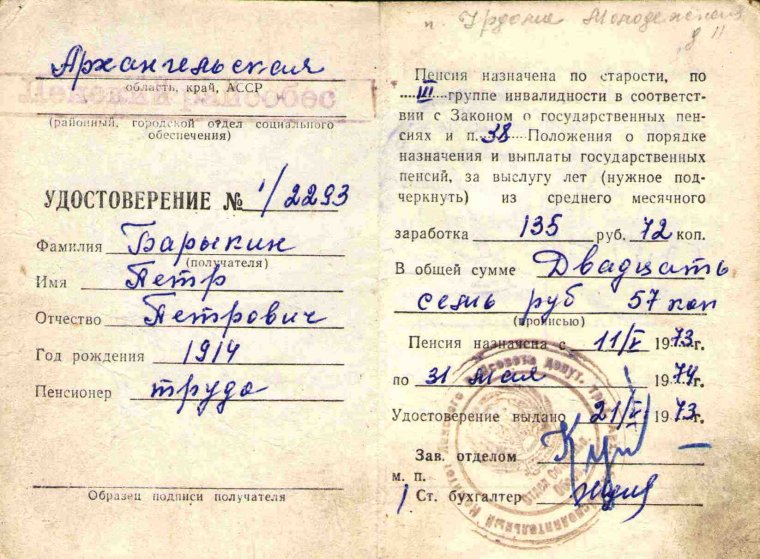 Архангельская
область, край, АССР
Ленский райсобес
(районный, городской отдел социального
обеспечения)
УДОСТОВЕРЕНИЕ № 1/2293
Фамилия Барыкин
(получателя)
Имя Петр
Отчество Петрович
Год рождения 1914
Пенсионер труда
Образец подписи получателя
п. Урдома
д 11
Пенсия назначена по старости, по
III группе инвалидности в соответст-
вии с Законом о государственных пен-
сиях и п. 38 Положения о порядке
назначения и выплаты государственных
пенсий, за выслугу лет (нужное под-
черкнуть) из среднего месячного
заработка 135 руб. 72 коп.
В общей сумме Двадцать
семь руб 57 коп
(прописью)
Пенсия назначена с 11/V 1973г.
по 31 мая 1974г.
Удостоверение выдано 21/V 1973г.
Зав. отделом
м. п.
Ст. бухгалтер